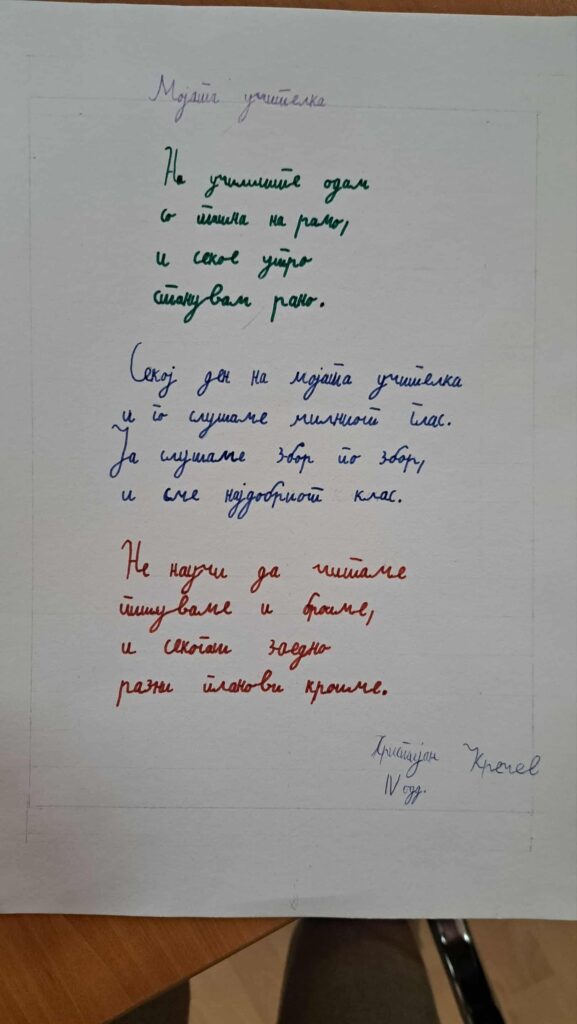 Мојата учителка
На училиште одам
со ташна на рамо,
и секое утро
станувам рано.
Секој ден на мојата учителка
и го слушаме милиот глас.
Ја слушаме збор по збор,
и сме најдобриот клас.
Не научи да читаме
пишуваме и броиме,
и секогаш заедно
разни планови кроиме.
Христијан Кречев
IV одд.